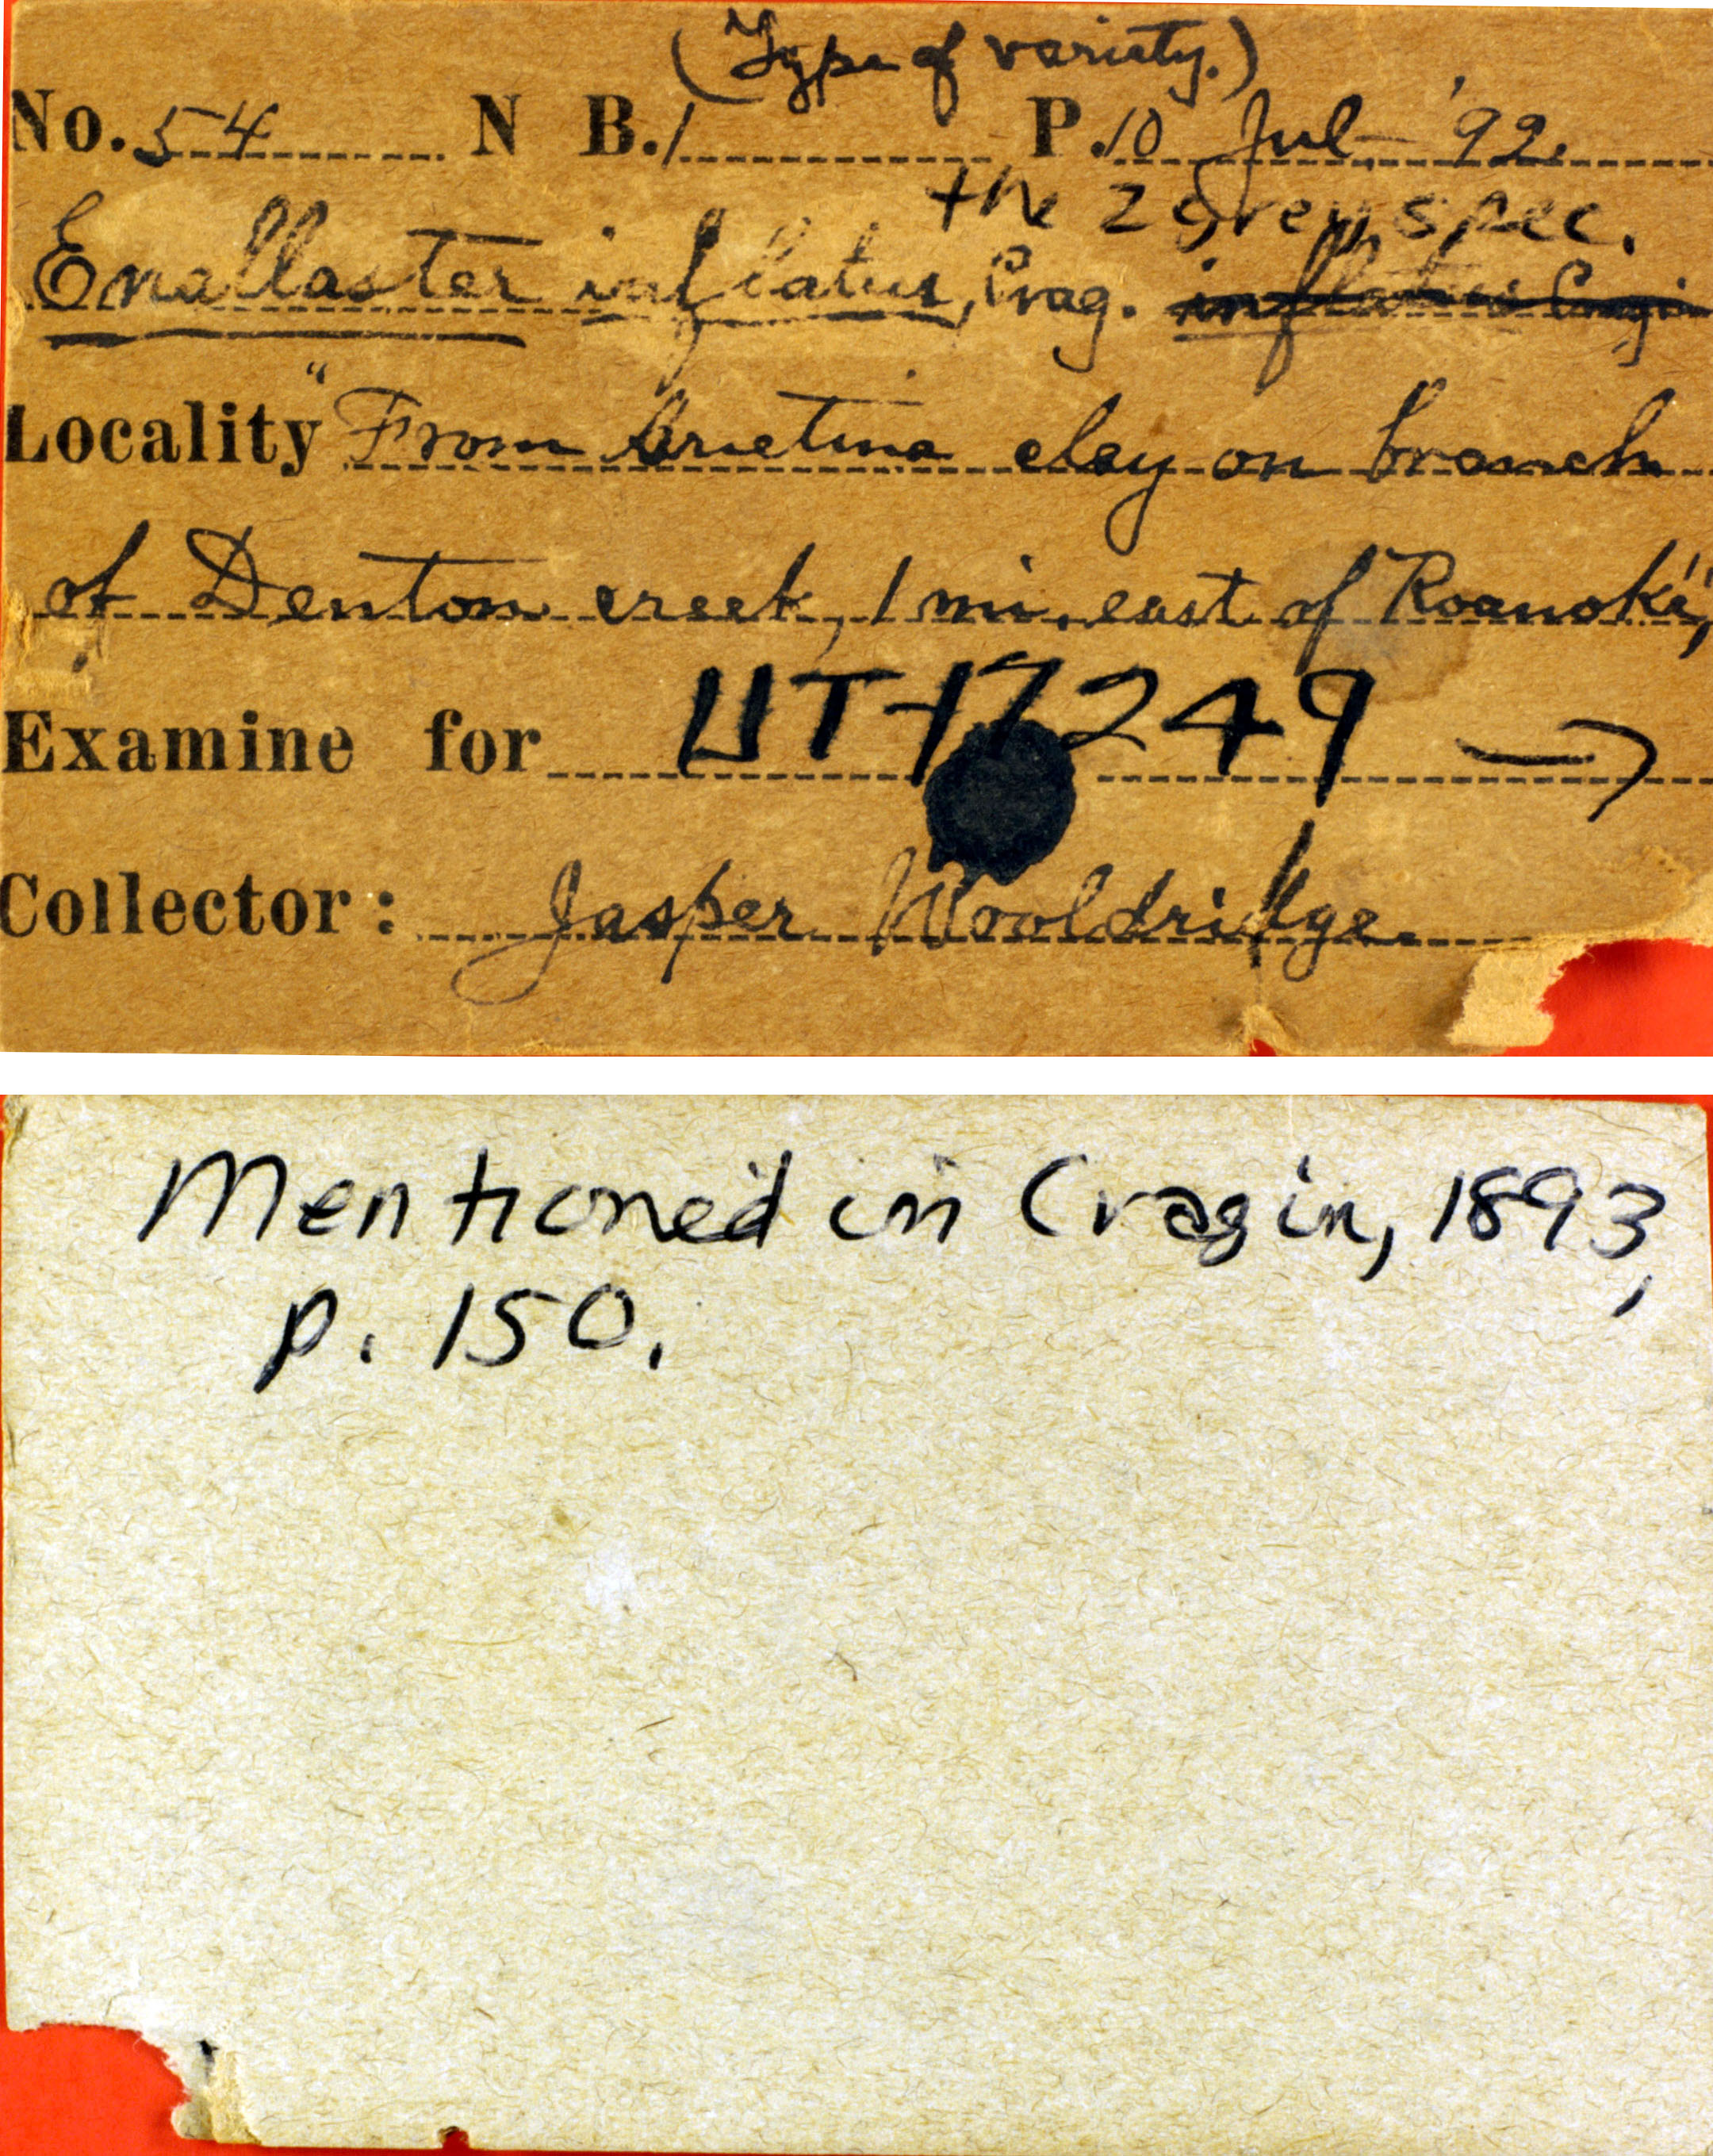 (Type of variety.)
No. 54 N B. 1 P. 10 Jul '92.
the 2 grey spec.
Enallaster inflatus, Crag. inflatus Cragin
Locality "From Arietina clay on branch
of Denton creek, 1 mi. east of Roanoke,"
Examine for UT-17249 →
Collector: Jasper Wooldridge.
Mentioned in Cragin, 1893,
p. 150.